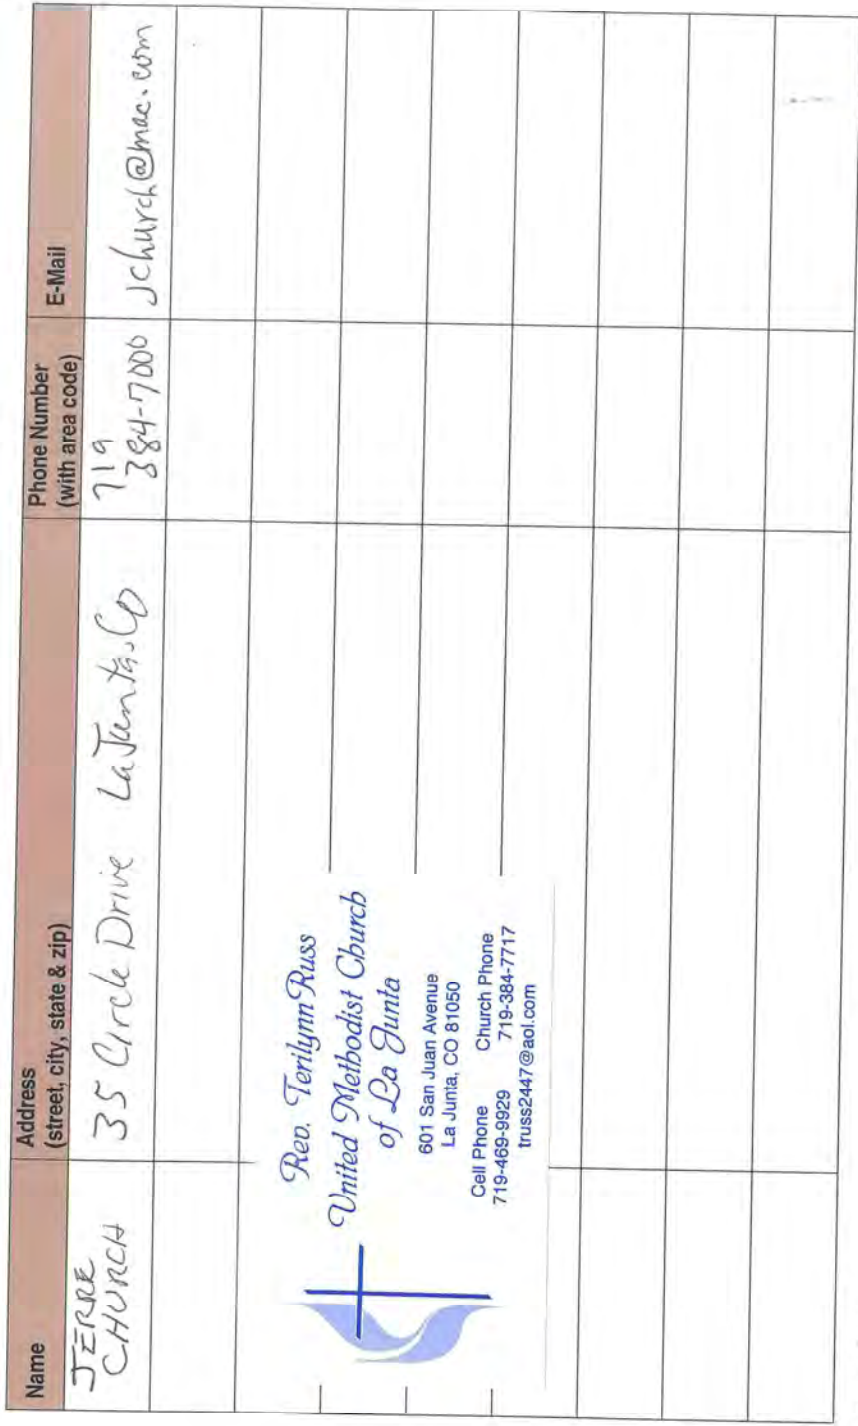 Name
Address
(street, city, state & zip)
Phone Number
(with area code)
E-Mail
JERRE
CHURCH
35 Circle Drive La Junta, Co
719
384-7000
jchurch@mac.com
Rev. Terilynn Russ
United Methodist Church
of La Junta
601 San Juan Avenue
La Junta, CO 81050
Cell Phone Church Phone
719-469-9929 719-384-7717
truss2447@aol.com